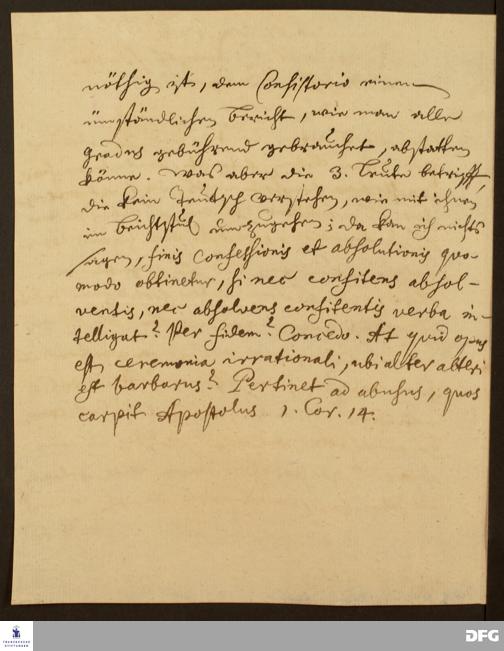 nöthig ist, dem Consistorio einen
umständlichen bericht, wie man alle
gradus gebührend gebrauchet, abstatten
könne. Was aber die 3. Leute betrifft,
die kein Teutsch verstehen, wie mit ihnen
im beichtstul umzugehen; da kan ich nichts
sagen, finis confessionis et absolutionis quo-
modo obtinetur, si nec confitens absol-
ventis, nec absolvens confitentis verba in-
telligat? Per fidem? Concedo. At quid opus
est ceremonia irrationali, ubi alter alteri
est barbarus? Pertinet ad abusus, quos
carpit Apostolus 1. Cor. 14.
FRANCKESCHE
STIFTUNGEN
DFG